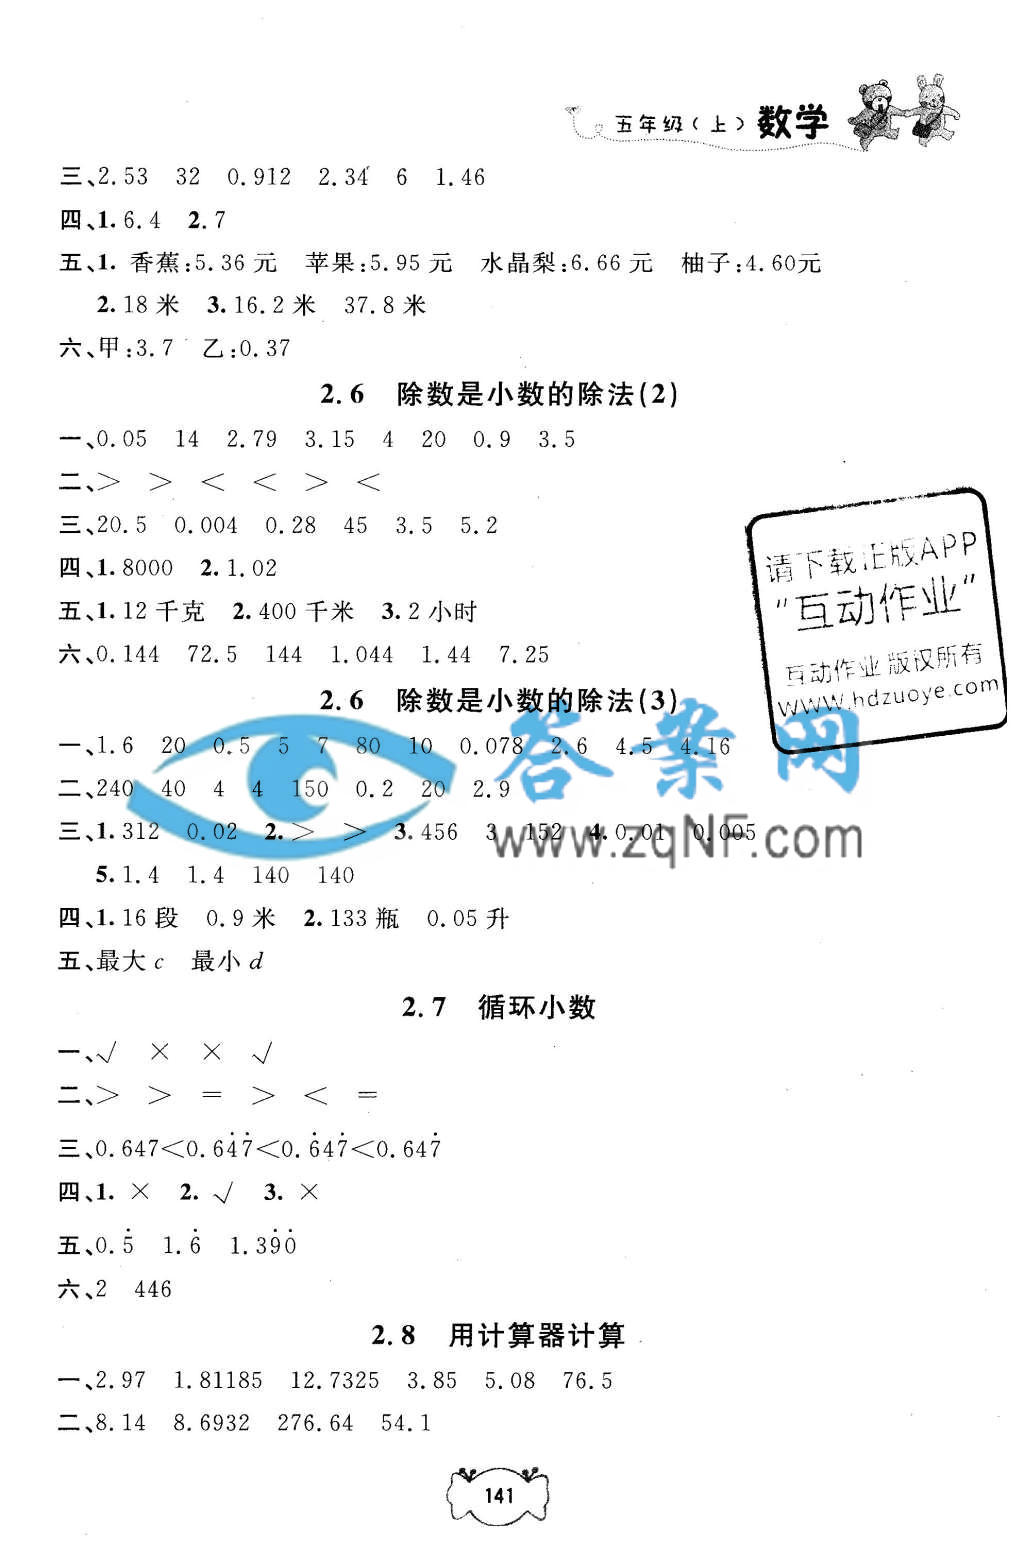 五年级(上) 数学
三、2.53 32 0.912 2.34 6 1.46
四、1. 6.4 2. 7
五、1. 香蕉:5.36元 苹果:5.95元 水晶梨:6.66元 柚子:4.60元
2. 18米 3. 16.2米 37.8米
六、甲:3.7 乙:0.37
2.6 除数是小数的除法(2)
一、0.05 14 2.79 3.15 4 20 0.9 3.5
二、> > < < > <
三、20.5 0.004 0.28 45 3.5 5.2
四、1. 8000 2. 1.02
五、1. 12千克 2. 400千米 3. 2小时
六、0.144 72.5 144 1.044 1.44 7.25
请下载正版APP
“互动作业”
互动作业 版权所有
www.hdzuoye.com
2.6 除数是小数的除法(3)
一、1.6 20 0.5 5 7 80 10 0.078 2.6 4.5 4.16
二、240 40 4 4 150 0.2 20 2.9
三、1. 312 0.02 2. > > 3. 456 3 152 4. 0.01 0.005
5. 1.4 1.4 140 140
答案网
www.zqNF.com
四、1. 16段 0.9米 2. 133瓶 0.05升
五、最大c 最小d
2.7 循环小数
一、√ × × √
二、> > = > < =
三、0.647<0.64̇7̇<0.6̇47̇<0.647̇
四、1. × 2. √ 3. ×
五、0.5̇ 1.6̇ 1.39̇0̇
六、2 446
2.8 用计算器计算
一、2.97 1.81185 12.7325 3.85 5.08 76.5
二、8.14 8.6932 276.64 54.1
141